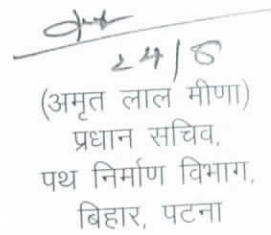 24/8
(अमृत लाल मीणा)
प्रधान सचिव,
पथ निर्माण विभाग,
बिहार, पटना